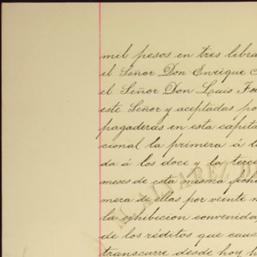 mil pesos en tres libra
el Señor Don Enrique
el Señor Don Luis
este Señor y aceptadas po
pagaderas en esta capita
cional la primera á
da á los doce y la terce
meses de esta misma fech
mera de ellas por veinte
la exhibicion convenida
de los réditos que caus
transcurre desde hoy